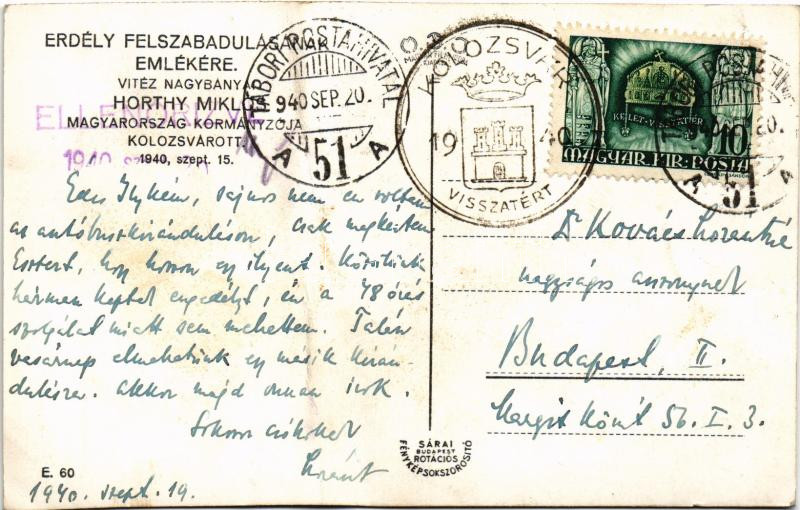 ERDÉLY FELSZABADULÁSÁNAK
EMLÉKÉRE.
VITÉZ NAGYBÁNYAI
HORTHY MIKLÓS
MAGYARORSZÁG KORMÁNYZÓJA
KOLOZSVÁROTT
1940, szept. 15.
ELLENŐRIZVE
1940
TÁBORI POSTAHIVATAL
940 SEP. 20.
A 51 A
KOLOZSVÁR
19 40
VISSZATÉRT
KELET-VISSZATÉR
10
MAGYAR KIR. POSTA
51
Édes Ilykém, sajnos nem én voltam
az autóbuszkiránduláson, csak megkértem
Esztert, hogy hozzon egy ilyent. Közülünk
hárman kaptak engedélyt, én a 48 órás
szolgálat miatt sem mehettem. Talán
vasárnap elmehetünk egy másik kirán-
dulásra. Akkor majd onnan írok.
Sokszor csókollak
Loránt
E. 60
1940. szept. 19.
Dr Kovács Lorántné
nagyságos asszonynak
Budapest, II.
Margit Körút 56. I. 3.
SÁRAI
BUDAPEST
ROTÁCIÓS
FÉNYKÉPSOKSZOROSÍTÓ